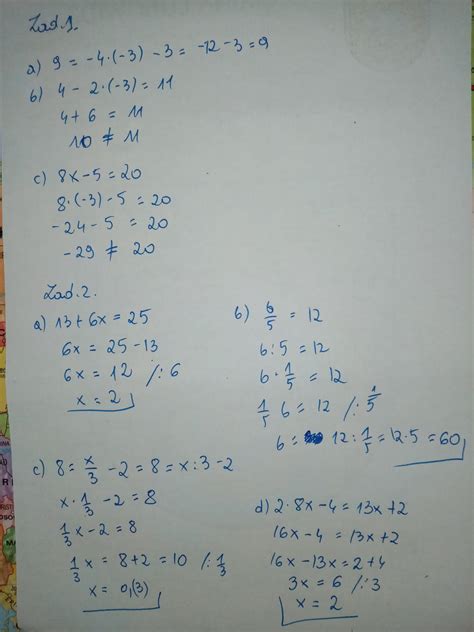 Zad.1.
a) 9 = -4·(-3) - 3 = -12 - 3 = 9
b) 4 - 2·(-3) = 11
4 + 6 = 11
10 ≠ 11
c) 8x - 5 = 20
8·(-3) - 5 = 20
-24 - 5 = 20
-29 ≠ 20
Zad.2.
a) 13 + 6x = 25
6x = 25 - 13
6x = 12 /:6
x = 2
b) 6/5 = 12
6:5 = 12
6·1/5 = 12
1/5 6 = 12 /:1/5
6 = 12:1/5 = 12·5 = 60
c) 8 = x/3 - 2 = 8 = x:3 - 2
x·1/3 - 2 = 8
1/3x - 2 = 8
1/3x = 8 + 2 = 10 /:1/3
x = 0,(3)
d) 2·8x - 4 = 13x + 2
16x - 4 = 13x + 2
16x - 13x = 2 + 4
3x = 6 /:3
x = 2